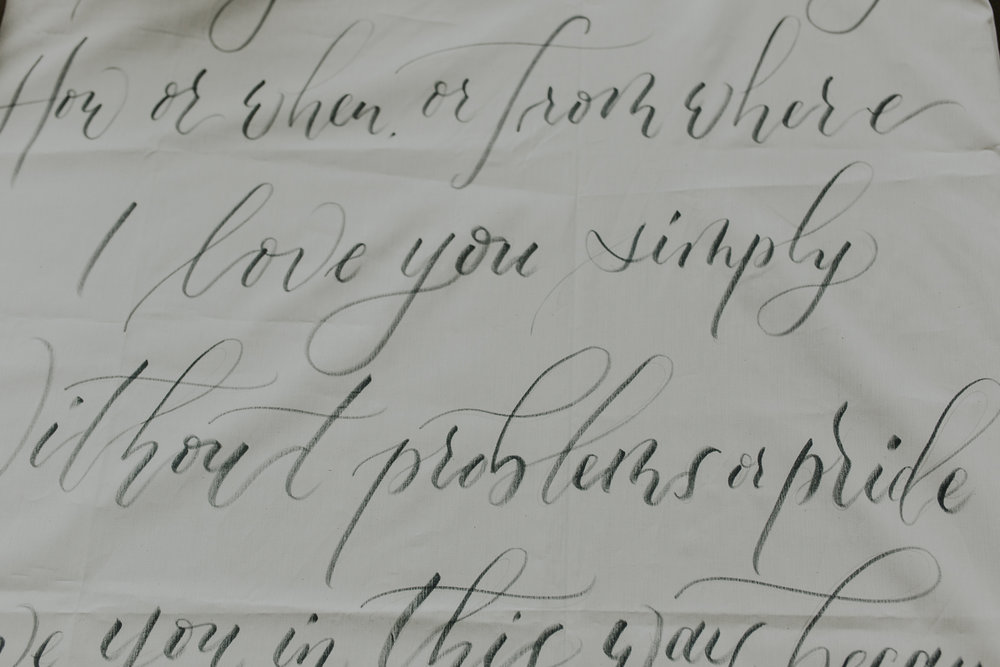 How or when. or from where
I love you simply
Without problems or pride
you in this way